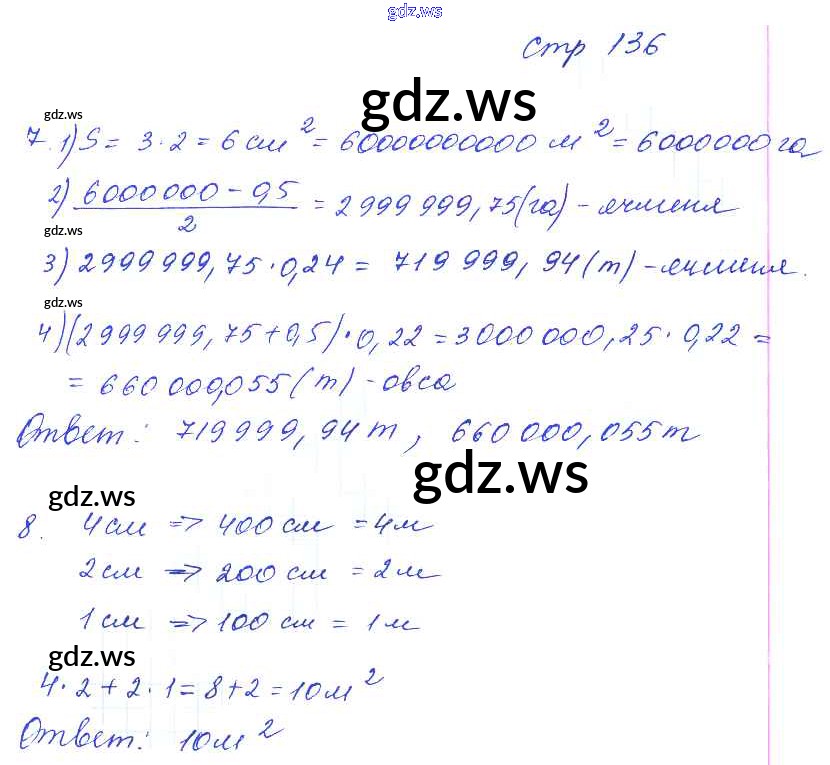 gdz.ws
стр 136
gdz.ws
gdz.ws
7. 1) S = 3·2 = 6 см² = 60000000000 м² = 6000000 га
2) (6000000 – 0,5)/2 = 2999999,75 (га) – ячменя
gdz.ws
gdz.ws
3) 2999999,75·0,24 = 719999,94 (т) – ячменя.
gdz.ws
4) (2999999,75+0,5)·0,22 = 3000000,25·0,22 =
= 660000,055 (т) – овса
Ответ: 719999,94 т, 660000,055 т
gdz.ws
gdz.ws
8. 4 см => 400 см = 4 м
2 см => 200 см = 2 м
1 см => 100 см = 1 м
gdz.ws
4·2+2·1=8+2=10 м²
Ответ: 10 м²